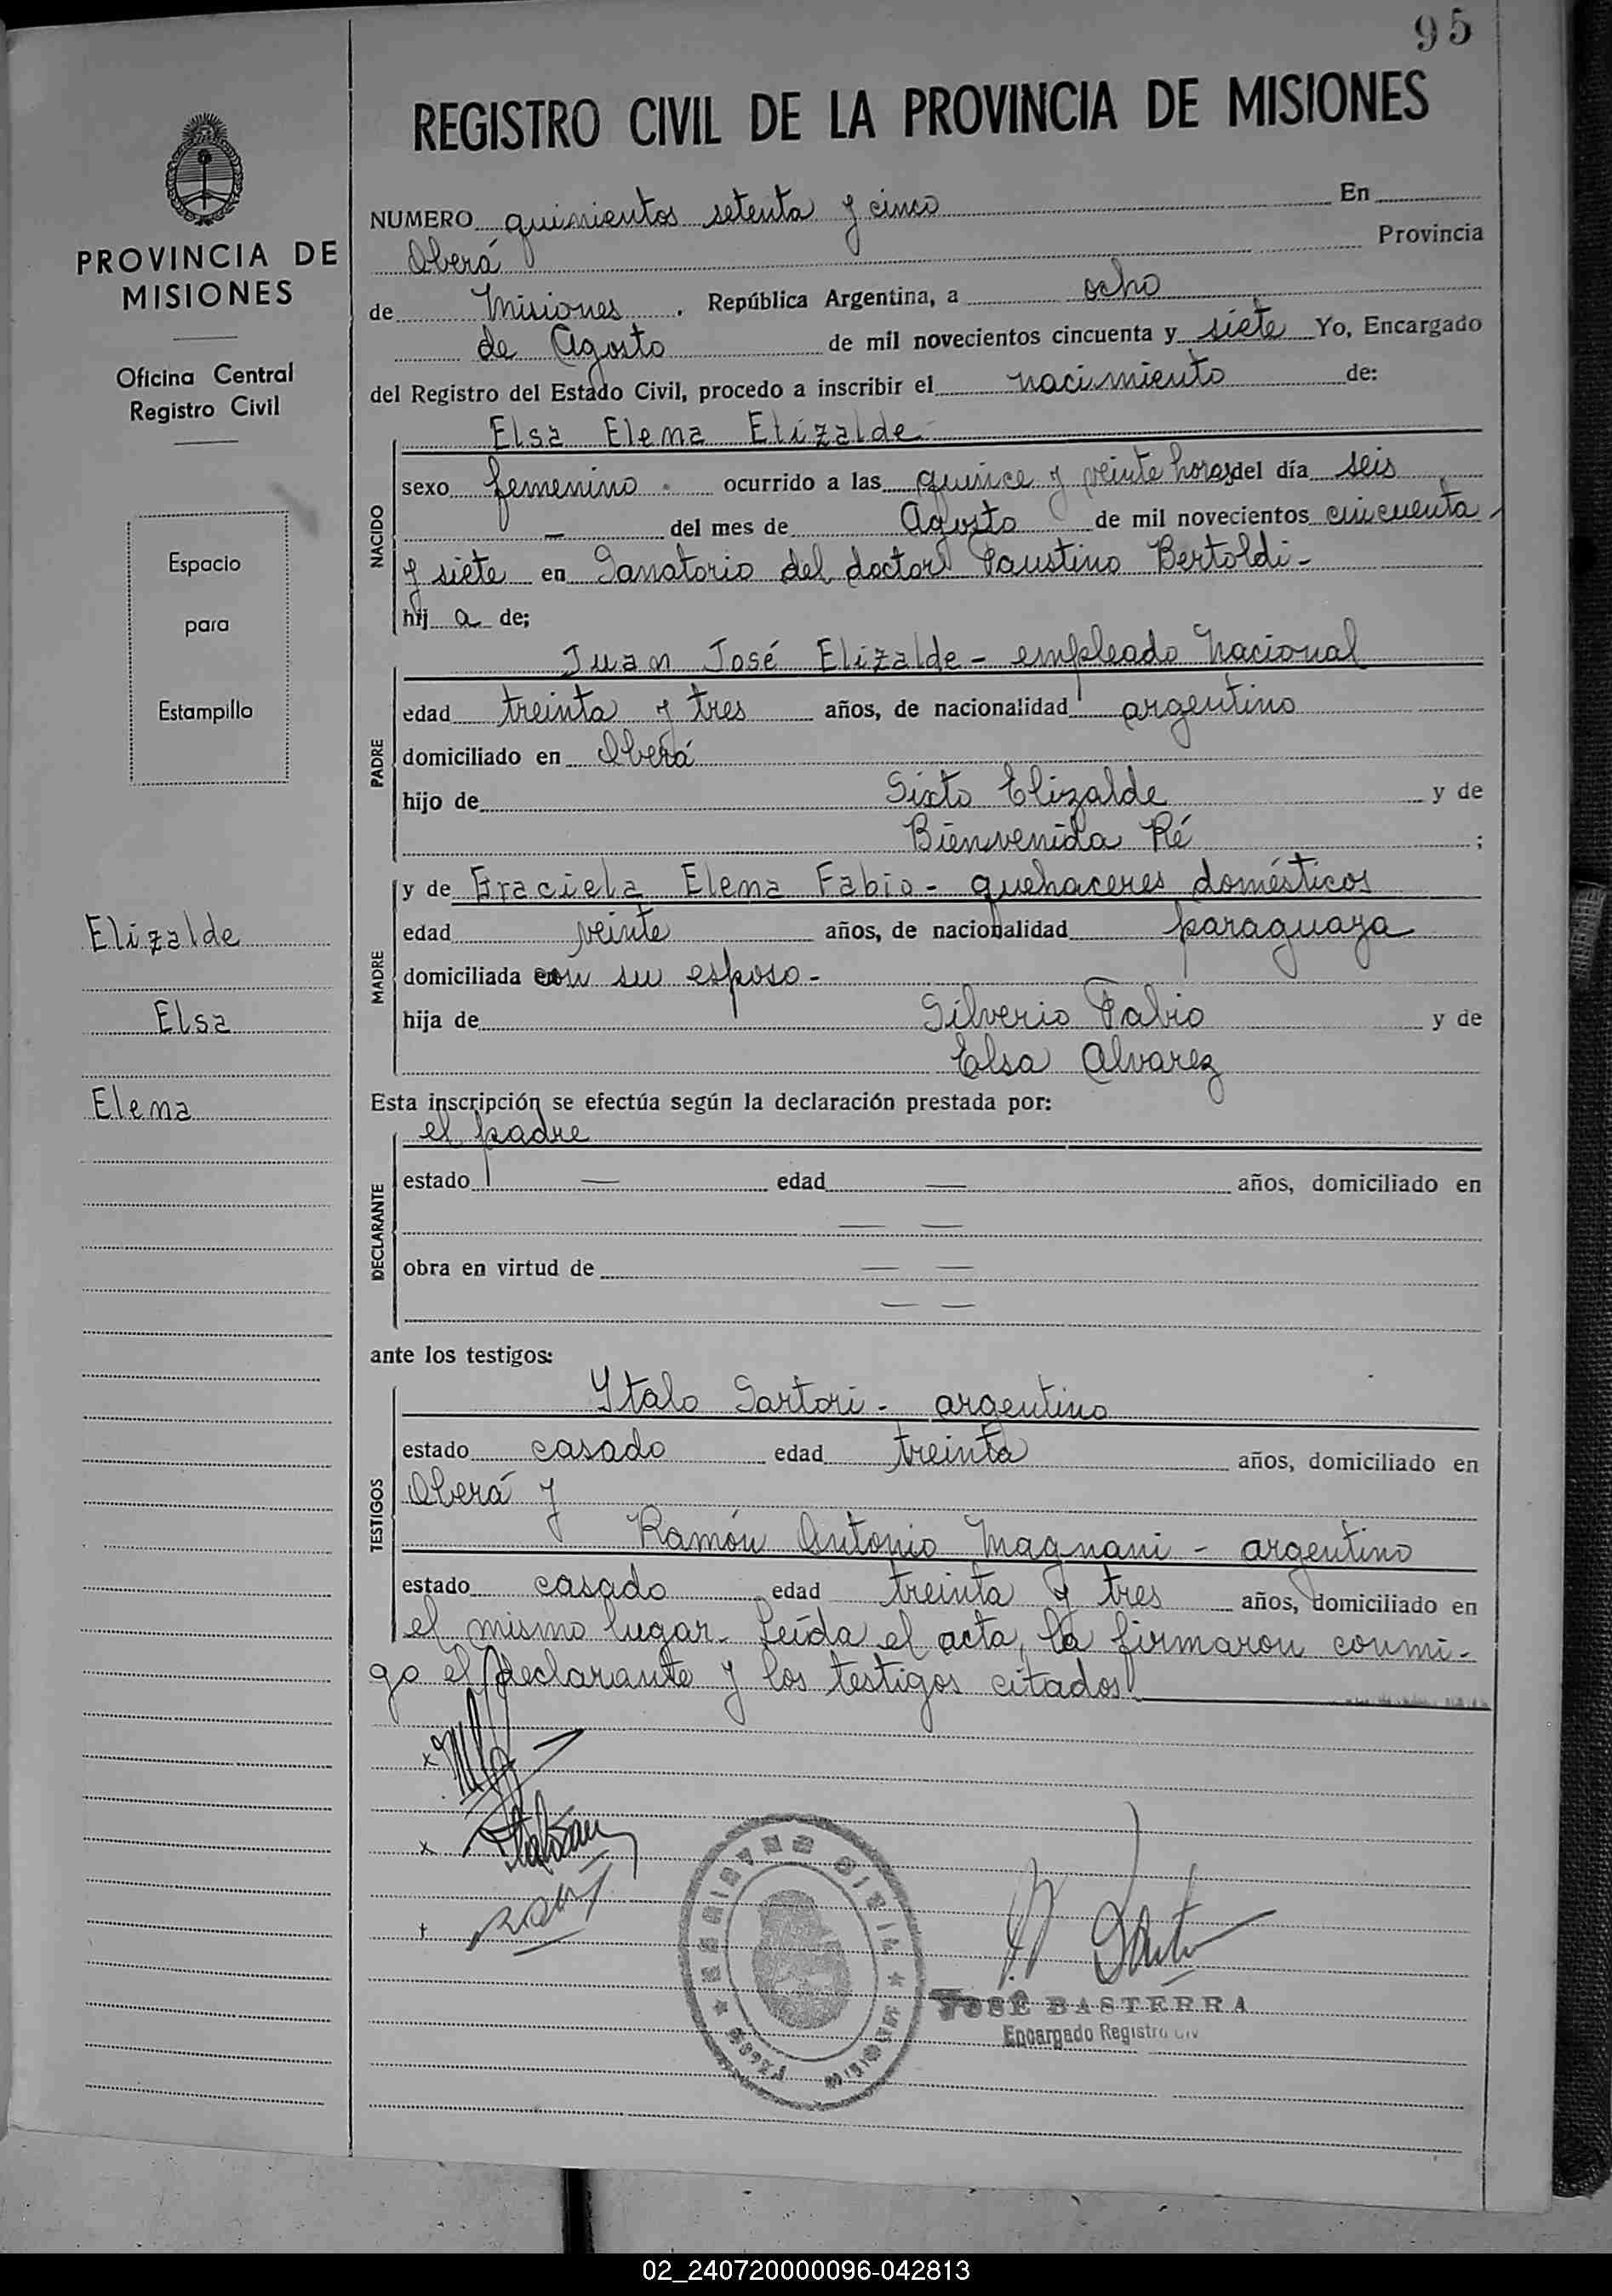 95
REGISTRO CIVIL DE LA PROVINCIA DE MISIONES
PROVINCIA DE
MISIONES
Oficina Central
Registro Civil
Espacio
para
Estampilla
Elizalde
Elsa
Elena
NUMERO quinientos setenta y cinco En
Oberá Provincia
de Misiones. República Argentina, a ocho
de Agosto de mil novecientos cincuenta y siete Yo, Encargado
del Registro del Estado Civil, procedo a inscribir el nacimiento de:
NACIDO
Elsa Elena Elizalde
sexo femenino ocurrido a las quince y veinte horas del día seis
— del mes de Agosto de mil novecientos cincuenta
y siete en Sanatorio del doctor Faustino Bertoldi-
hij a de;
PADRE
Juan José Elizalde - empleado Nacional
edad treinta y tres años, de nacionalidad argentino
domiciliado en Oberá
hijo de Sixto Elizalde y de
Bienvenida Ré ;
MADRE
y de Graciela Elena Fabio - quehaceres domésticos
edad veinte años, de nacionalidad paraguaya
domiciliada con su esposo-
hija de Silverio Fabio y de
Elsa Alvarez
Esta inscripción se efectúa según la declaración prestada por:
DECLARANTE
el padre
estado — edad — años, domiciliado en
— —
obra en virtud de — —
— —
ante los testigos:
TESTIGOS
Ytalo Sartori - argentino
estado casado edad treinta años, domiciliado en
Oberá y
Ramón Antonio Magnani - argentino
estado casado edad treinta y tres años, domiciliado en
el mismo lugar. Leída el acta, la firmaron conmi-
go el declarante y los testigos citados
REGISTRO CIVIL
OBERA
MISIONES
JOSÉ BASTERRA
Encargado Registro Civ
02_240720000096-042813